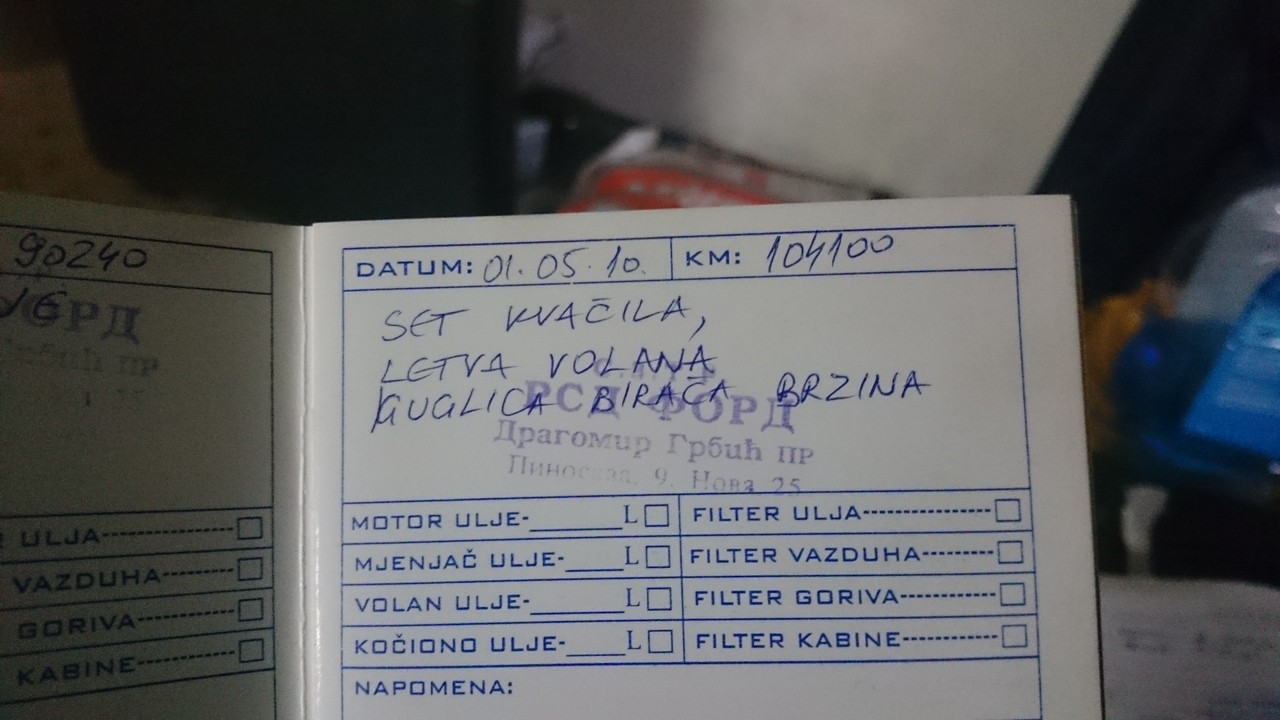 90240
ФОРД
ПР
ULJA
VAZDUHA
GORIVA
KABINE
DATUM: 01.05.10. KM: 104100
SET KVAČILA,
LETVA VOLANA
GUGLICA BIRAČA BRZINA
РСД ФОРД
Драгомир Грбић ПР
9. Нова 25
MOTOR ULJE-______L FILTER ULJA
MJENJAČ ULJE-____L FILTER VAZDUHA
VOLAN ULJE-______L FILTER GORIVA
KOČIONO ULJE-____L FILTER KABINE
NAPOMENA: